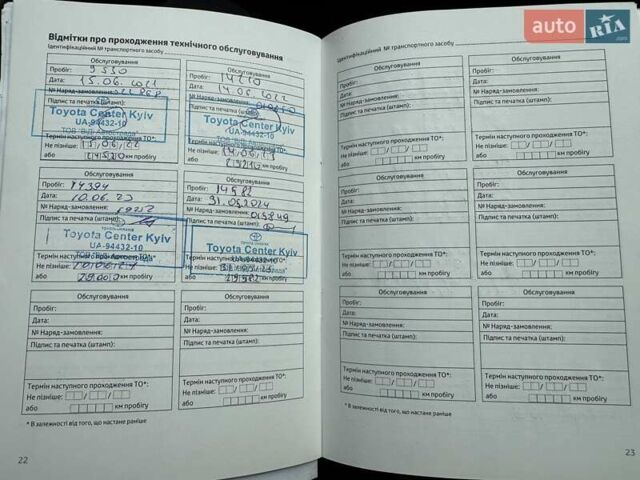 Відмітки про проходження технічного обслуговування
Ідентифікаційний № транспортного засобу
Обслуговування
Пробіг: 9 550
Дата: 15.06.2021
№ Наряд-замовлення:
Підпис та печатка (штамп):
Toyota Center Kyiv
UA-94432-10
Термін наступного проходження ТО*:
Не пізніше: 15/06/22
або
км пробігу
Обслуговування
Пробіг: 14210
Дата: 14.06.2022
№ Наряд-замовлення:
Підпис та печатка (штамп):
Toyota Center Kyiv
UA-94432-10
Термін наступного проходження ТО*:
Не пізніше: 14/06/23
або
км пробігу
Обслуговування
Пробіг: 14394
Дата: 10.06.23
№ Наряд-замовлення:
Підпис та печатка (штамп):
Toyota Center Kyiv
UA-94432-10
Термін наступного проходження ТО*:
Не пізніше:
або
км пробігу
Обслуговування
Пробіг: 14982
Дата: 31.05.2024
№ Наряд-замовлення: 015849
Підпис та печатка (штамп):
Toyota Center Kyiv
UA-94432-10
Не пізніше:
або
км пробігу
Обслуговування
Пробіг:
Дата:
№ Наряд-замовлення:
Підпис та печатка (штамп):
Термін наступного проходження ТО*:
Не пізніше:
або
км пробігу
Обслуговування
Пробіг:
Дата:
№ Наряд-замовлення:
Підпис та печатка (штамп):
Термін наступного проходження ТО*:
Не пізніше:
або
км пробігу
* В залежності від того, що настане раніше
22
auto RIA.com
Ідентифікаційний № транспортного засобу
Обслуговування
Пробіг:
Дата:
№ Наряд-замовлення:
Підпис та печатка (штамп):
Термін наступного проходження ТО*:
Не пізніше:
або
км пробігу
Обслуговування
Пробіг:
Дата:
№ Наряд-замовлення:
Підпис та печатка (штамп):
Термін наступного проходження ТО*:
Не пізніше:
або
км пробігу
Обслуговування
Пробіг:
Дата:
№ Наряд-замовлення:
Підпис та печатка (штамп):
Термін наступного проходження ТО*:
Не пізніше:
або
км пробігу
Обслуговування
Пробіг:
Дата:
№ Наряд-замовлення:
Підпис та печатка (штамп):
Термін наступного проходження ТО*:
Не пізніше:
або
км пробігу
Обслуговування
Пробіг:
Дата:
№ Наряд-замовлення:
Підпис та печатка (штамп):
Термін наступного проходження ТО*:
Не пізніше:
або
км пробігу
Обслуговування
Пробіг:
Дата:
№ Наряд-замовлення:
Підпис та печатка (штамп):
Термін наступного проходження ТО*:
Не пізніше:
або
км пробігу
* В залежності від того, що настане раніше
23